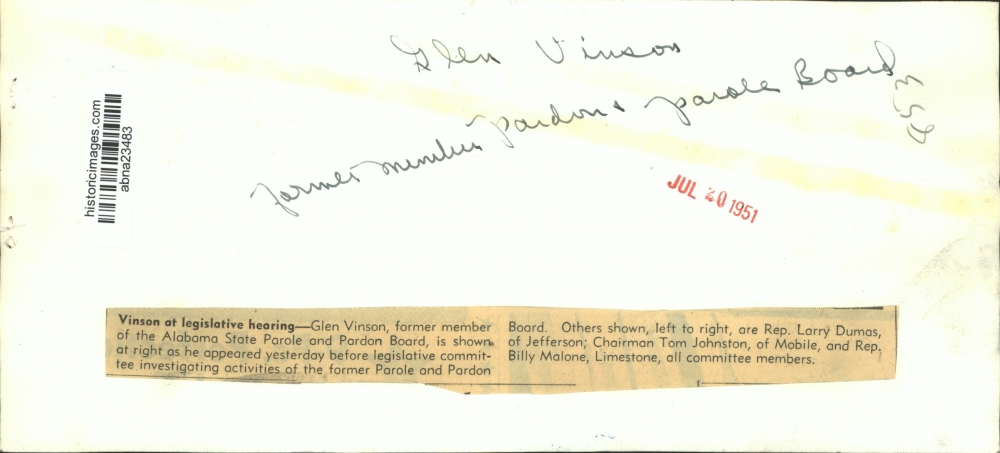 Glen Vinson
former member pardon & parole Board
historicimages.com
abna23483
JUL 20 1951
Vinson at legislative hearing—Glen Vinson, former member
of the Alabama State Parole and Pardon Board, is shown
at right as he appeared yesterday before legislative commit-
tee investigating activities of the former Parole and Pardon
Board. Others shown, left to right, are Rep. Larry Dumas,
of Jefferson; Chairman Tom Johnston, of Mobile, and Rep.
Billy Malone, Limestone, all committee members.